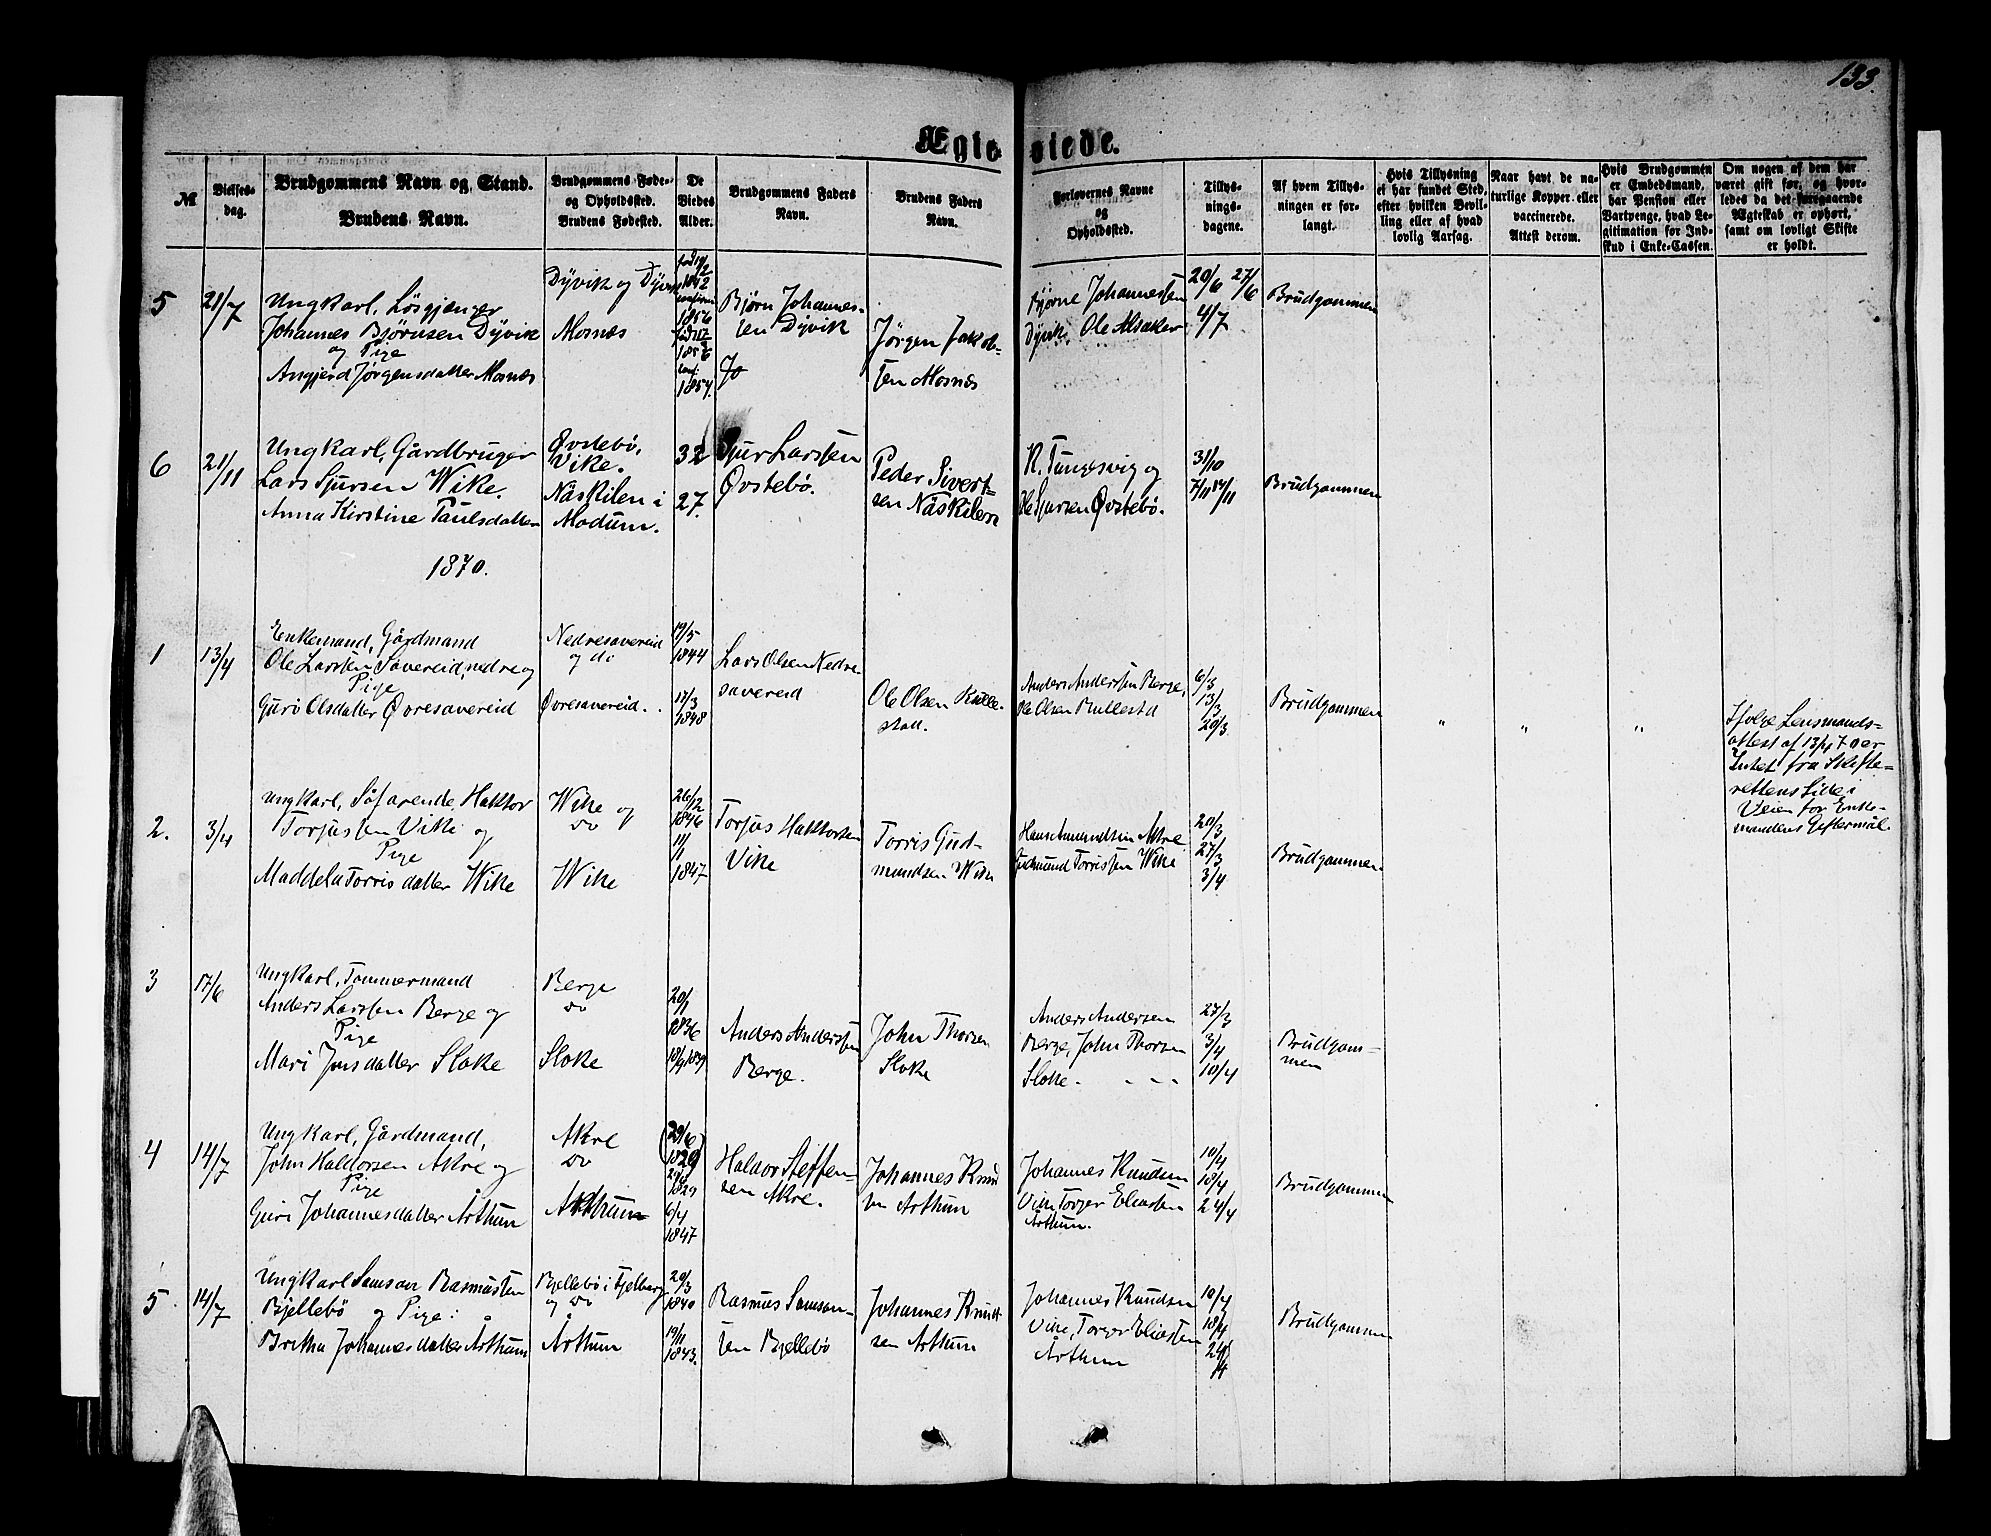 133.
Ægteviede.
№
Vielses-
dag.
Brudgommens Navn og Stand.
Brudens Navn.
Brudgommens Føde-
og Opholdssted.
Brudens Fødested.
De
Viedes
Alder.
Brudgommens Faders
Navn.
Brudens Faders
Navn.
Forlovernes Navne
og
Opholdssted.
Tillys-
nings-
dagene.
Af hvem Tillys-
ningen er for-
langt.
Hvis Tillysning
ei har fundet Sted,
efter hvilken Bevil-
ling eller af hvad
lovlig Aarsag.
Naar havt de na-
turlige Kopper eller
vaccinerede.
Attest derom.
Hvis Brudgommen
er Embedsmand,
har Pension eller
Vartpenge, hvad Le-
gitimation for Ind-
skud i Enke-Cassen.
Om nogen af dem har
været gift før, og hvor-
ledes da det foregaaende
Ægteskab er ophørt,
samt om lovligt Skifte
er holdt.
5
21/7
Ungkarl, Løsgjenger
Johannes Bjørnsen Dÿvik
og Pige
Angjerd Jørgensdatter Mosnæs
Dÿvik og Dÿvik
Mosnæs
Bjørn Johannes-
sen Dÿvik
Jørgen Jakob-
sen Mosnæs
Bjørne Johannessen
Dÿvik, Ole Alsaker
20/6 27/6
4/7
Brudgommen
6
21/11
Ungkarl, Gårdbruger
Lars Sjursen Wike.
Anna Kirstine Paulsdatter
Øvstebö,
Vike.
Näskilen i
Modum.
32
27.
Sjur Larssen
Øvstebö.
Peder Sivert-
sen Näskilen
R. Tungesvig og
Ole Sjursen Øvstebö.
31/10
7/11 14/11
Brudgommen
1870.
1
13/4
Enkemand, Gårdmand
Ole Larssen Savereid, nedre og
Pige
Guro Olsdatter Øvresavereid
Nedresavereid
og do
Øvresavereid.
19/5
1844
17/3
1848
Lars Olsen Nedre-
savereid
Ole Olsen Kulle-
stad.
Anders Anderssen Berge,
Ole Olsen Kullestd
6/3
13/3
20/3
Brudgommen
"
"
"
Ifølge Lensmands-
attest af 13/4 70 er
Intet fra Skifte-
rettens Side i
Veien for Enke-
mandens Giftermål.
2.
3/4
Ungkarl, Söfarende, Haktor
Torjussen Vike og
Pige
Maddela Torrisdatter Wike
Wike og
do
Wike
26/12
1846
11/1
1847
Torjus Haktorsen
Vike
Torris Gud-
mundsen Wike
Hans Amundsen Akre
Gudmund Torrissen Wike
20/3
27/3
3/4
Brudgommen
3
17/6
Ungkarl, Tømmermand
Anders Larssen Berge og
Pige
Mari Jonsdatter Sloke
Berge
do
Sloke
20/1
1836
18/9 1839
Anders Anderssen
Berge.
John Thorsen
Sloke
Anders Andersen
Berge, John Thorsen
Sloke.
27/3
3/4
10/4
Brudgom-
men
4
14/7
Ungkarl, Gårdmand,
John Haldorsen Akre og
Pige
Guri Johannesdatter Årthun
Akre
do
Arthun
29/6
1829
1829
6/4
1847
Haldor Steffen-
sen Akre.
Johannes Knud
sen Arthun
Johannes Knudsen
Vike, Torger Eliassen
Årthun.
10/4
18/4
24/4
Brudgommen
5
14/7
Ungkarl Samson Rasmussen
Bjellebö og Pige:
Britha Johannesdatter Årthun
Bjellebö i Fjelberg
og do
Årthun
20/3
1840
19/11
1843.
Rasmus Samson-
sen Bjellebö
Johannes Knudt-
sen Arthun
Johannes Knudsen
Vike, Torger Eliassen
Årthun
10/4
18/4
24/4
Brudgommen